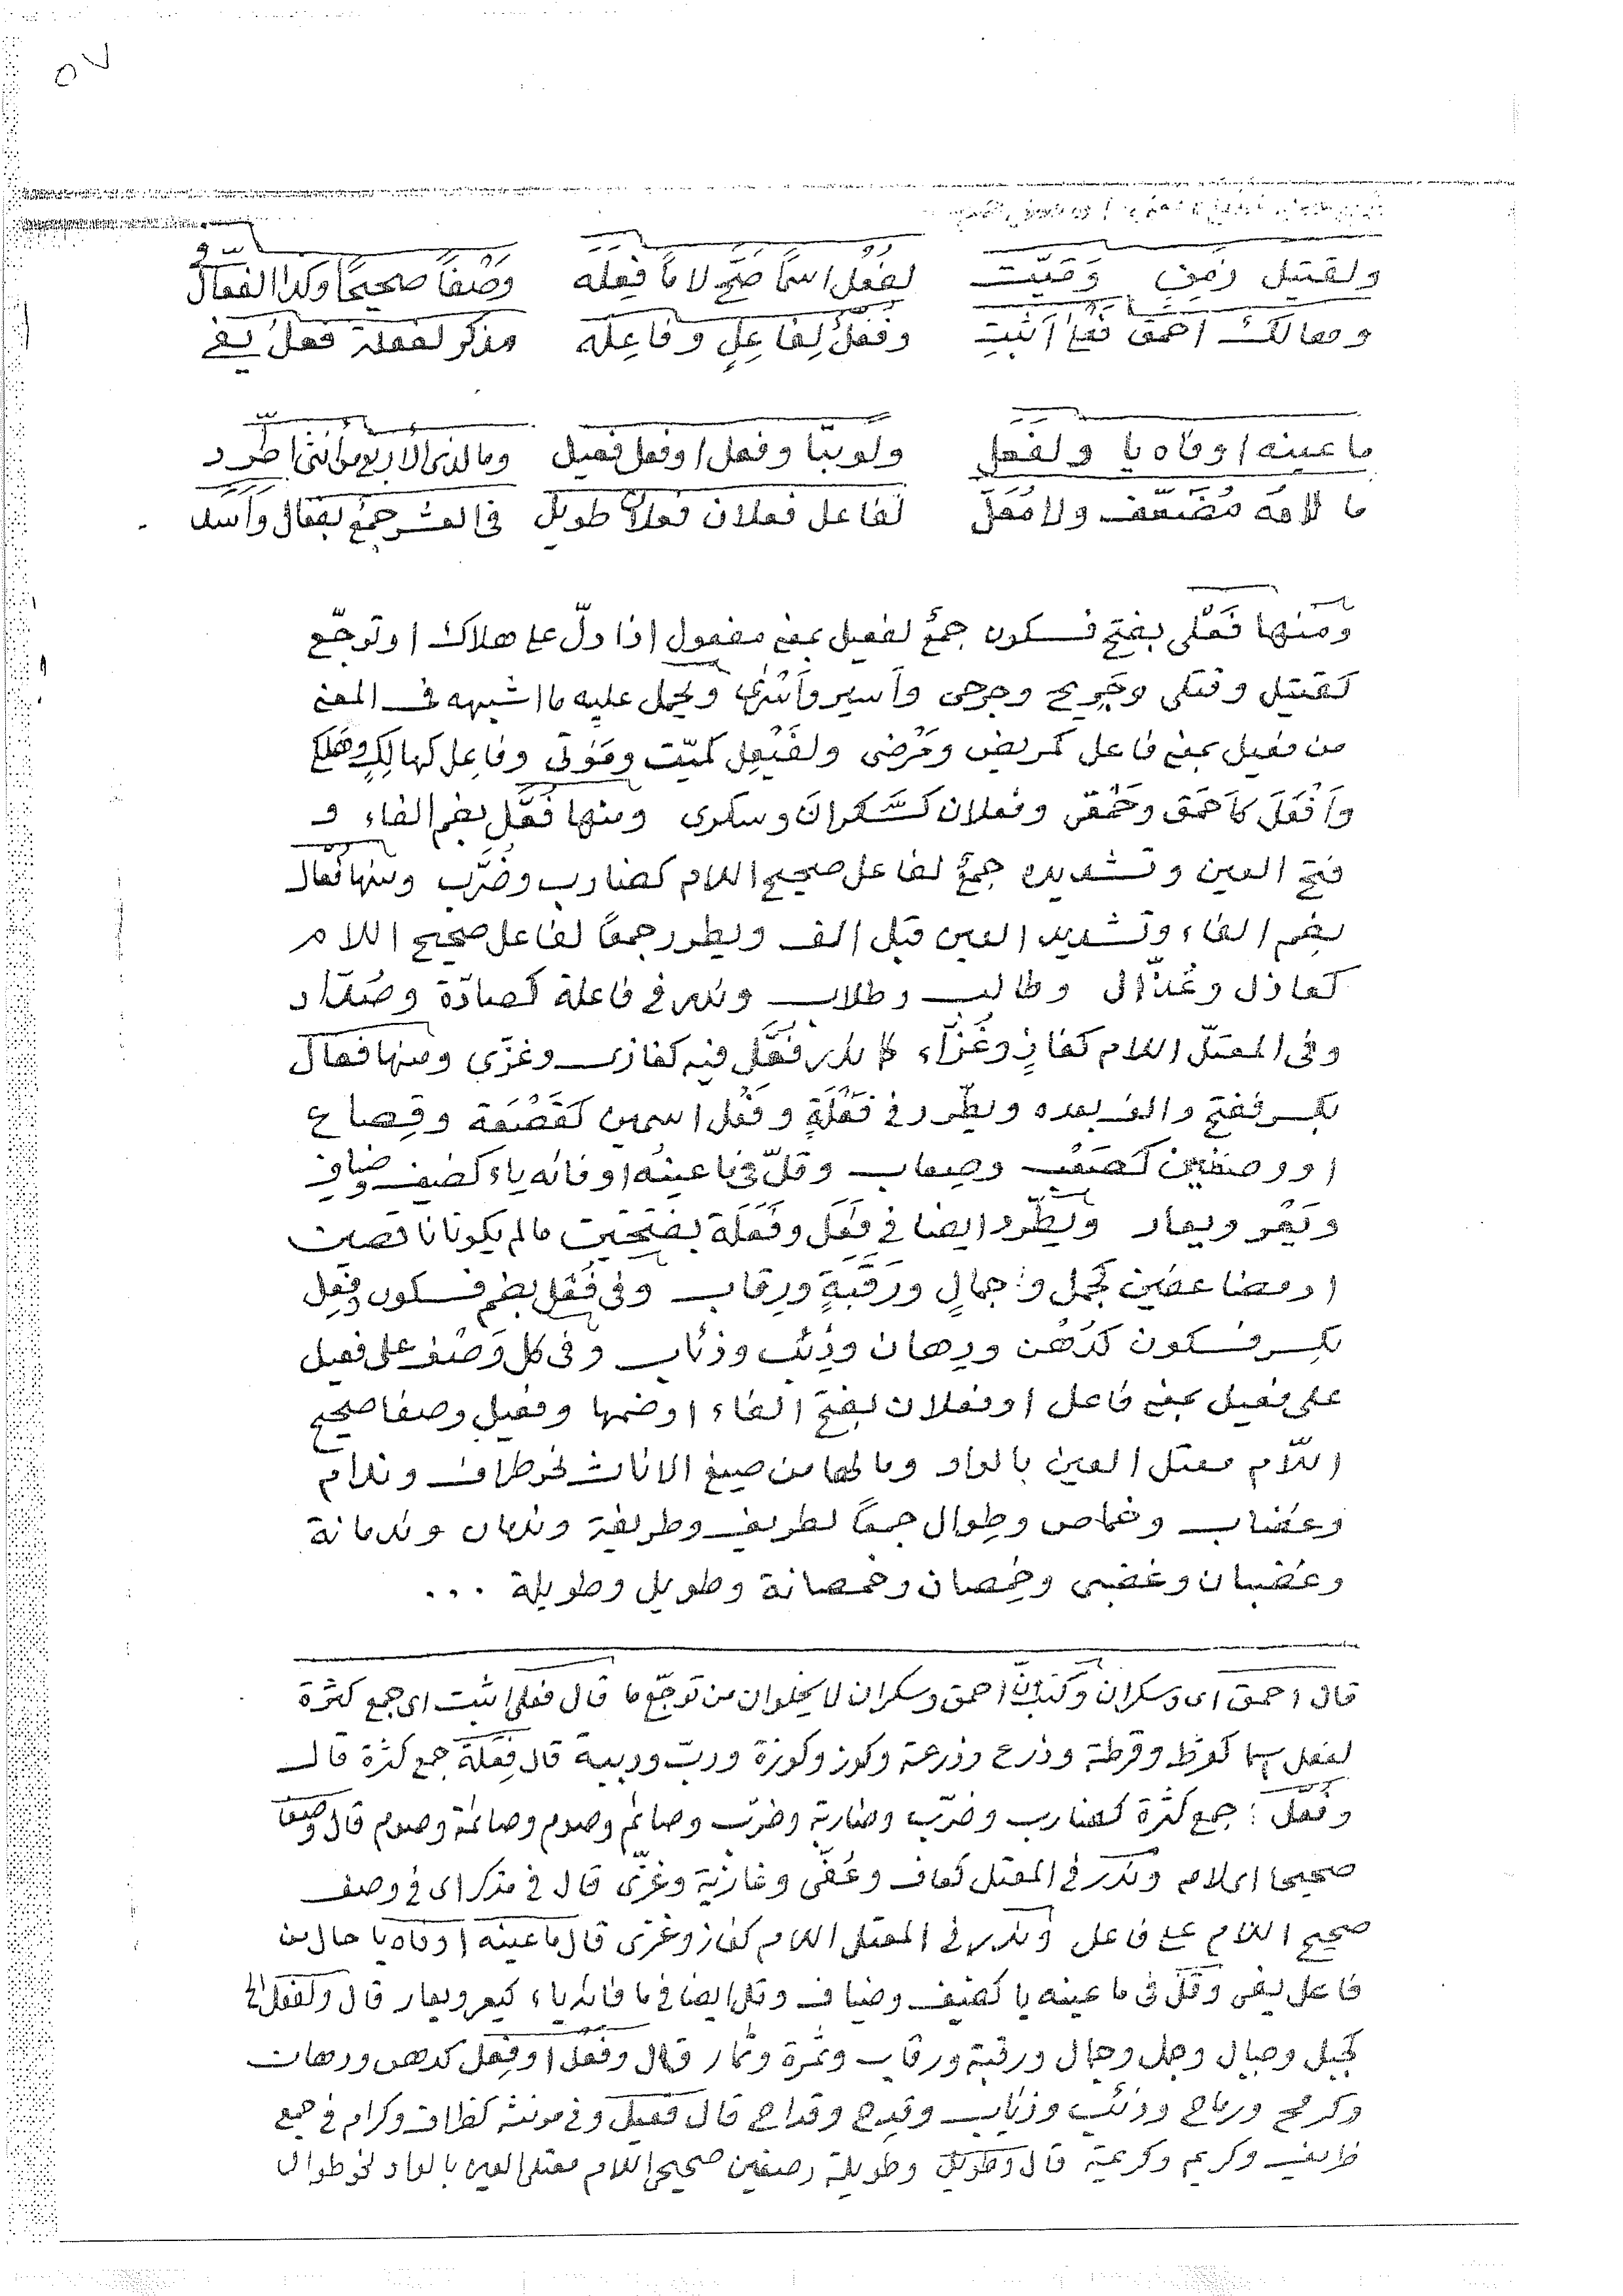 ٥٧
ولقتيل زمن وميّت لفُعْل اسمًا صَحَّ لامًا فِعَلَه وَصْفًا صحيحًا وكذا الفعال
وهالك احمق فَعْلى اَثْبِتِ وفُعَّلٌ لِفاعِلٍ وفاعِلَه مذكر لفعلة فعل يفي
ما عينه اوفاه يا ولفعل ولو بتا وفعل اوفعل فعيل وما لذى الاربع من انثى اطّرد
ما لامه مُضَعَّف ولا مُعَلّ لفاعل فعلان فعلان طويل في العشر جمعٌ بفعال وأسد
ومنها فَعْلى بفتح فسكون جمعٌ لفعيل بمعنى مفعول اذا دلّ على هلاك او توجّع
كقتيل وقتلى وجَرِيح وجرحى وأسير وأَسْرى ويحمل عليه ما اشبهه في المعنى
من فعيل بمعنى فاعل كمريض ومَرْضى ولفَيْعِل كميّت ومَوْتى وفاعِل كهالِكٍ وهَلْكى
وأَفْعَلَ كأَحمَق وحَمْقى وفعلان كسَكرانَ وسكرى ومنها فُعَّل بضم الفاء و
فتح العين وتشديده جمعٌ لفاعل صحيح اللام كضارب وضُرَّب ومنها فُعّال
بضم الفاء وتشديد العين قبل الف ويطرد جمعًا لفاعل صحيح اللام
كعاذل وعُذّال وطالب وطلاب وندر في فاعلة كصادّة وصُدّاد
وفي المعتلّ اللام كغازٍ وغُزّاء كما ندر فُعَّل فيه كغازى وغزّى ومنها فِعال
بكسر ففتح والف بعده ويطّرد في فَعْلَةٍ وفَعْل اسمين كقَصْعَة وقِصاع
او وصفين كصَعْب وصِعاب وقلّ في ما عينُه او فائه ياء كضيف وضياف
ويَعْر ويعار ويطّرد ايضا في فَعَل وفَعَلَة بفتحتين ما لم يكونا ناقصين
او مضاعفين كجمل وجمالٍ ورَقَبَةٍ ورِقاب وفي فُعْل بضم فسكون وفِعْل
بكسر فسكون كدُهْن ودِهان وذِئب وذئاب وفي كل وَصْف على فعيل
على فعيل بمعنى فاعل او فعلان بفتح الفاء او ضمها وفعيل وصفا صحيح
اللّام معتل العين بالواو وما لها من صيغ الاناث نحو ظراف وندام
وغضاب وخماص وطِوال جمعًا لظريف وظريفة وندمان وندمانة
وغضبان وغضبى وخُمصان وخمصانة وطويل وطويلة ...
قال احمق اى وسكران احمق وسكران لا يخلوان من توجّع ما قال فعلى اثبت اى جمع كثرة
لفعل اسما كقرط وقرطة وذرج وذرجة وكوز وكوزة ودبّ ودببة قال فِعَلَة جمع كثرة قال
وفُعَّل : جمع كثرة كضارب وضرّب وضاربة وضرّب وصائم وصوم وصائمة وصوم قال وصفا
صحيحا اى لام وندر في المعتل كعاف وعُفّى وغازية وغزّى قال في مذكر اى في وصف
صحيح اللام على فاعل وندر في المعتل اللام كغاز وغزى قال ما عينه اوفاه يا حال من
فاعل يفى وقلّ في ما عينه يا كضيف وضياف وقل ايضا في ما فائه ياء كيعر ويعار قال ولفعل الخ
كجبل وجبال وجمل وجمال ورقبة ورقاب وثمرة وثمار قال وفعل اوفعل كدهن ودهان
وكرمح ورماح وذئب وذئاب وقدح وقداح قال فعيل وفي مونثه كظراف وكرام في جمع
ظريف وكريم وكريمة قال وطويل وطويلة وصفين صحيح اللام معتل العين بالواو نحو طوال